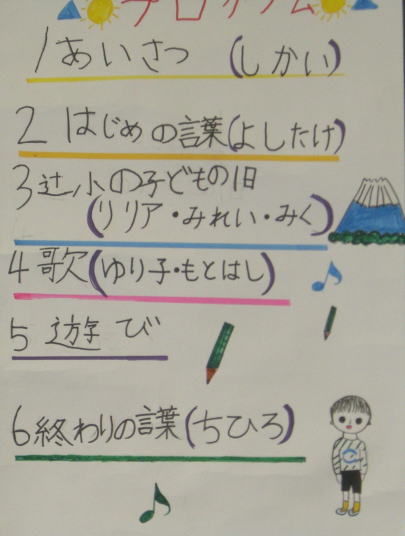 プログラム
1あいさつ (しかい)
2 はじめの言葉(よしたけ)
3辻小の子どもの旧
(リリア・みれい・みく)
4歌(ゆり子・もとはし)
5 遊び
6終わりの言葉(ちひろ)